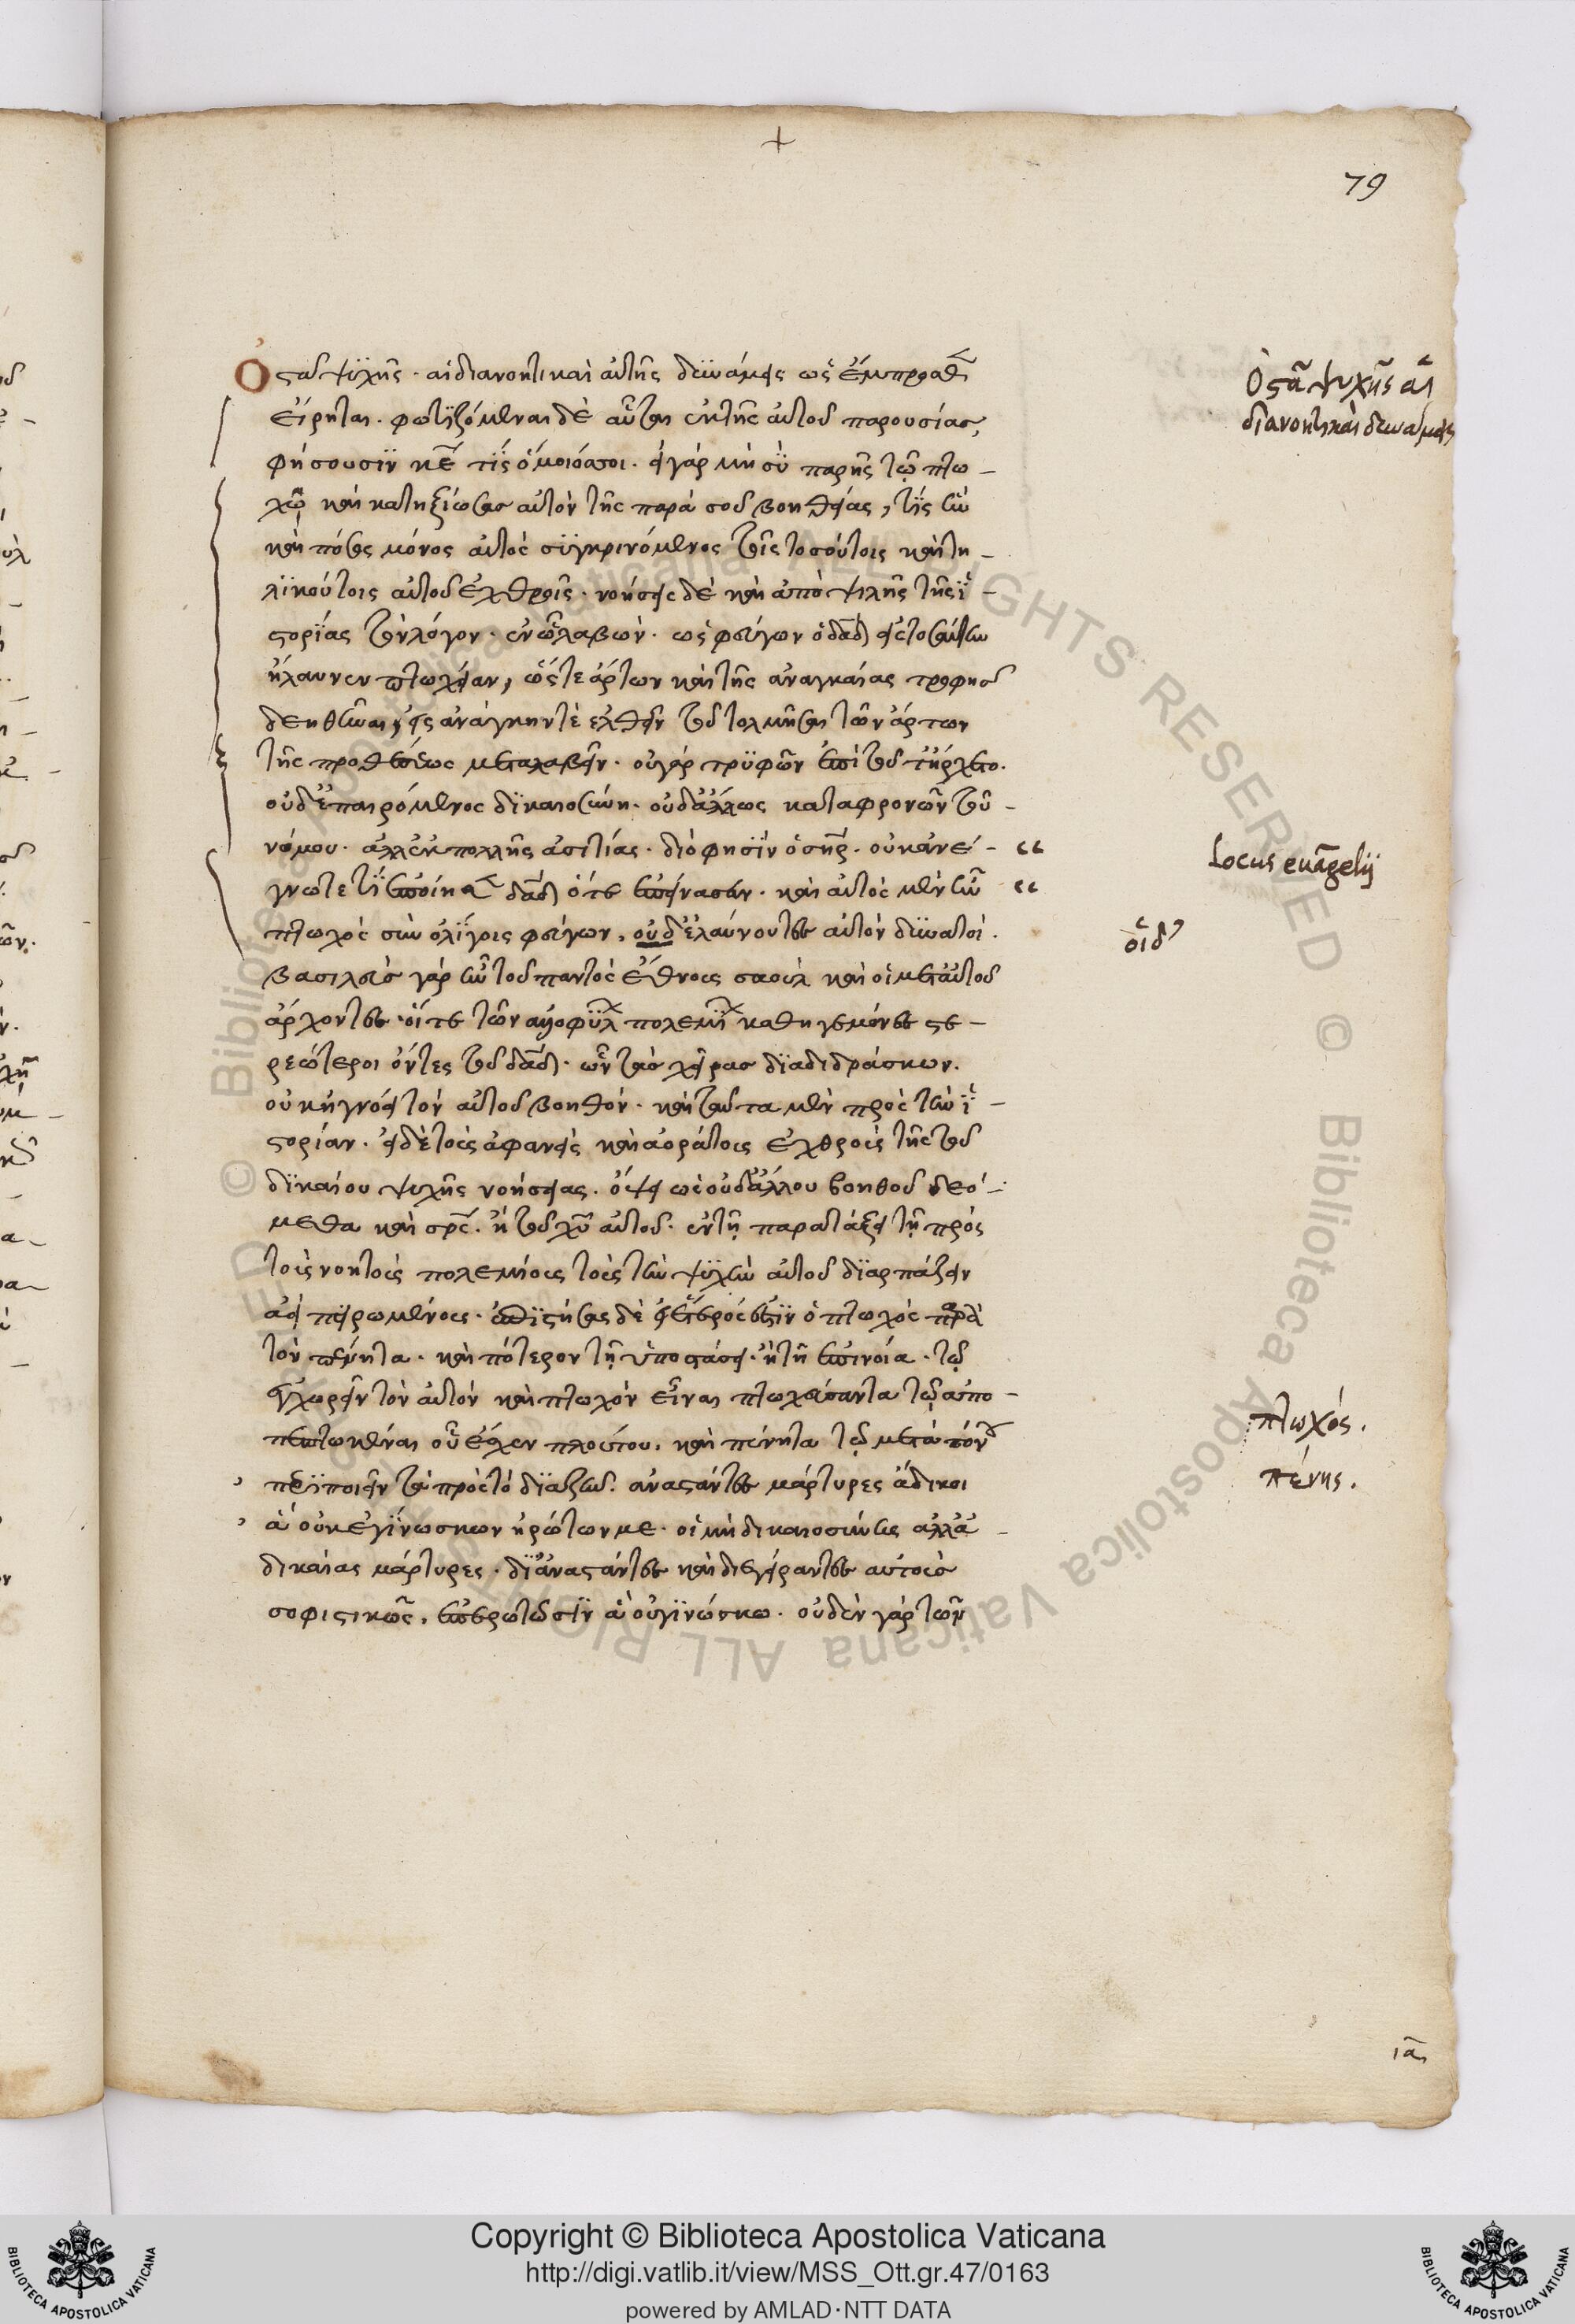 +
79
Ὀστᾶ ψυχῆς· αἱ διανοητικαὶ αὐτῆς δυνάμεις ὡς ἔμπροσθεν
εἴρηται. φωτιζόμεναι δὲ αὗται ἐκ τῆς αὐτοῦ παρουσίας,
φήσουσιν κε τίς ὅμοιός σοι. εἰ γὰρ μὴ σὺ παρῆς τῷ πτω-
χῷ καὶ κατηξίωσας αὐτὸν τῆς παρά σου βοηθείας, τίς ἦν
καὶ πόσος μόνος αὐτὸς συγκρινόμενος τοῖς τοσούτοις καὶ τη-
λικούτοις αὐτοῦ ἐχθροῖς. νοήσεις δὲ καὶ ἀπὸ ψιλῆς τῆς ἱ-
στορίας τὸν λόγον. ἐν ᾧ λαβὼν. ὡς φεύγων ὁ δαδ εἰς τοσαύτην
ἤλαυνεν πτωχείαν, ὥστε ἄρτων καὶ τῆς ἀναγκαίας τροφῆς
δεηθῆναι, εἰς ἀνάγκην τὲ ἐλθεῖν τοῦ τολμῆσαι τῶν ἄρτων
τῆς προθέσεως μεταλαβεῖν. οὐ γὰρ τρυφῶν ἐπὶ τοῦτ' ἤρχετο.
οὐδ' ἐπαιρόμενος δικαιοσύνη. οὐδ' ἄλλως καταφρονῶν τοῦ
νόμου. ἀλλ' ἐκ πολλῆς ἀσιτίας. διό φησὶν ὁ σηρ. οὐκ ἀνέ- “
γνωτε τί ἐποίησε δαδ ὅτε ἐπείνασεν. καὶ αὐτὸς μὲν ἦν “
πτωχὸς σὺν ὀλίγοις φεύγων, οὐδ' ἐλαύνοντες αὐτὸν δυνατοί.
βασιλεὺς γὰρ ἦν τοῦ παντὸς ἔθνους σαοὺλ καὶ οἱ μετ' αὐτοῦ
ἄρχοντες. οἵ τε τῶν ἀλλοφύλ πολεμι καθηγεμόνες στε-
ρεώτεροι ὄντες τοῦ δαδ. ὧν τὰς χεῖρας διαδιδράσκων.
οὐκ ἠγνόει τὸν αὐτοῦ βοηθόν. καὶ ταῦτα μὲν πρὸς τὴν ἱ-
στορίαν. εἰ δὲ τοὺς ἀφανεῖς καὶ ἀοράτους ἐχθροὺς τῆς τοῦ
δικαίου ψυχῆς νοήσειας. ὄψει ὡς οὐδ' ἄλλου βοηθοῦ δεό-
μεθα καὶ σρς. ἢ τοῦ χυ αὐτοῦ. ἐν τῇ παρατάξει τῇ πρὸς
τοὺς νοητοὺς πολεμίους τοὺς τὴν ψυχὴν αὐτοῦ διαρπάζειν
ἀεὶ πειρωμένους. ἐπιζητήσεις δὲ εἰ ἕτερός ἐστιν ὁ πτωχὸς παρὰ
τὸν πένητα. καὶ πότερον τῇ ὑποστάσει. ἢ τῇ ἐπινοία. τῷ
ἐγχωρεῖν τὸν αὐτὸν καὶ πτωχὸν εἶναι πτωχεύσαντα τῷ ἀπο-
πεπτωκέναι οὗ ἔσχεν πλούτου, καὶ πένητα τῷ μετὰ πόνου
περιποιεῖν τὰ πρὸς τὸ διαζῆν. ἀναστάντες μάρτυρες ἄδικοι
ἃ οὐκ ἐγίνωσκον ἠρώτων με. οἱ μὴ δικαιοσύνης ἀλλὰ
δικαίας μάρτυρες. διαναστάντες καὶ διεγείραντες αὐτοὺς
σοφιστικῶς, ἐπερωτῶσιν ἃ οὐ γινώσκω. οὐδὲν γὰρ τῶν
Ὀστᾶ ψυχῆς αἱ
διανοητικαὶ δυνάμεις
Locus euãgelij
οἱ δ'
πτωχός.
πένης.
Copyright © Biblioteca Apostolica Vaticana
http://digi.vatlib.it/view/MSS_Ott.gr.47/0163
powered by AMLAD·NTT DATA
BIBLIOTECA APOSTOLICA VATICANA
BIBLIOTECA APOSTOLICA VATICANA